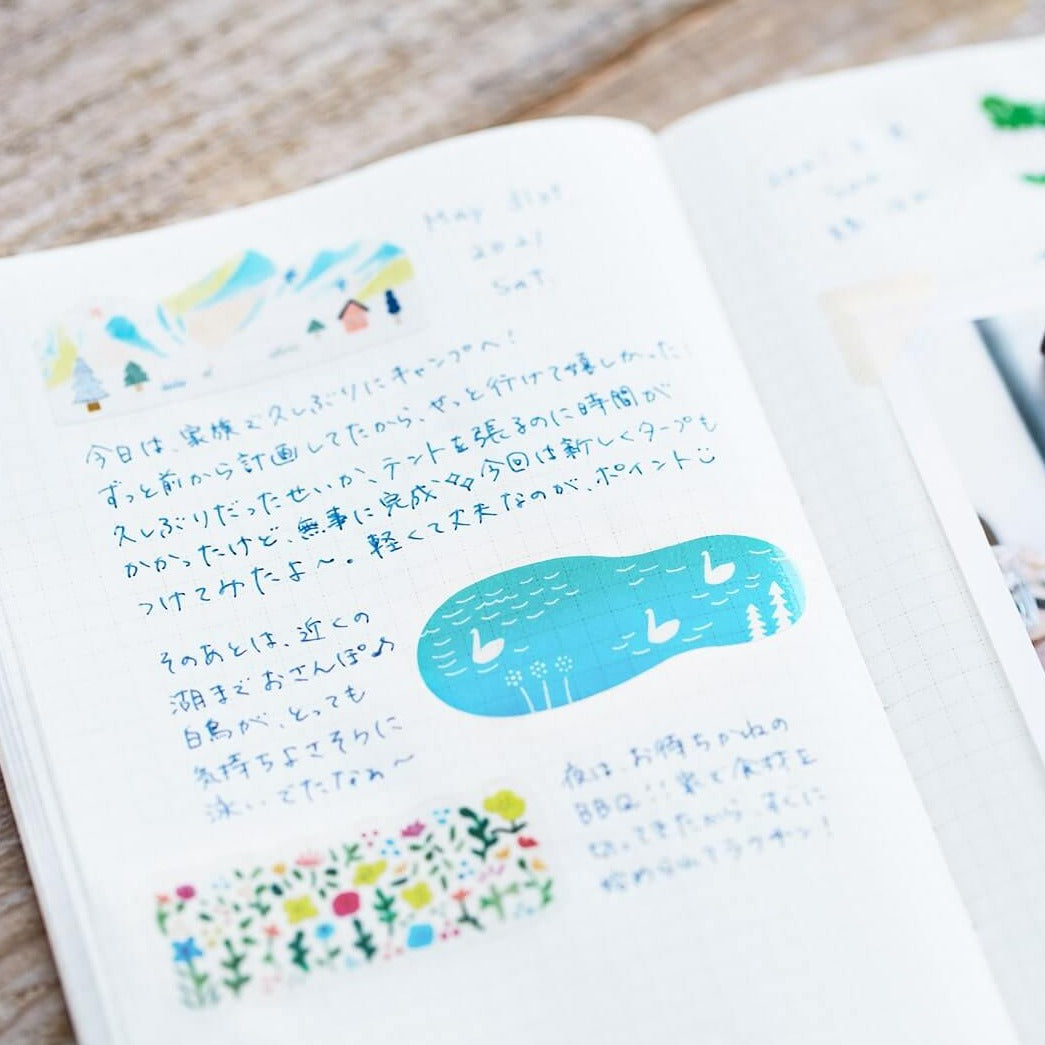 May 31st
2021
Sat.
今日は、家族で久しぶりにキャンプへ!
ずっと前から計画してたから、やっと行けて嬉しかった!
久しぶりだったせいか、テントを張るのに時間が
かかったけど、無事に完成 今回は新しくタープも
つけてみたよ〜。軽くて丈夫なのが、ポイント
そのあとは、近くの
湖までおさんぽ♪
白鳥が、とっても
気持ちよさそうに
泳いでたなぁ〜
夜は、お待ちかねの
BBQ!! 家で食材を
切ってきたから、すぐに
始められてラクチン!